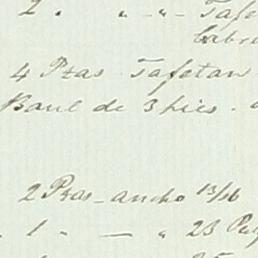 2 " " - " - Tafe
Cabr
4 Pzas Tafetan
Baul de 3 pies.
2 Pzas - ancho 13/16
1 " — " 23 Pul